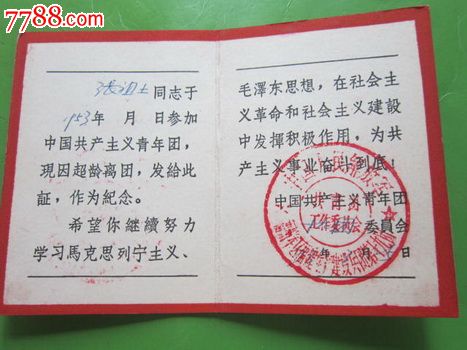 7788.com
张祖士同志于
1953年 月 日参加
中国共产主义青年团，
現因超龄离团，发给此
証，作为紀念。
希望你継續努力
学习馬克思列宁主义、
毛澤东思想，在社会主
义革命和社会主义建設
中发揮积极作用，为共
产主义事业奋斗到底！
中国共产主义青年团
委員会
年 月 日
工作委员会